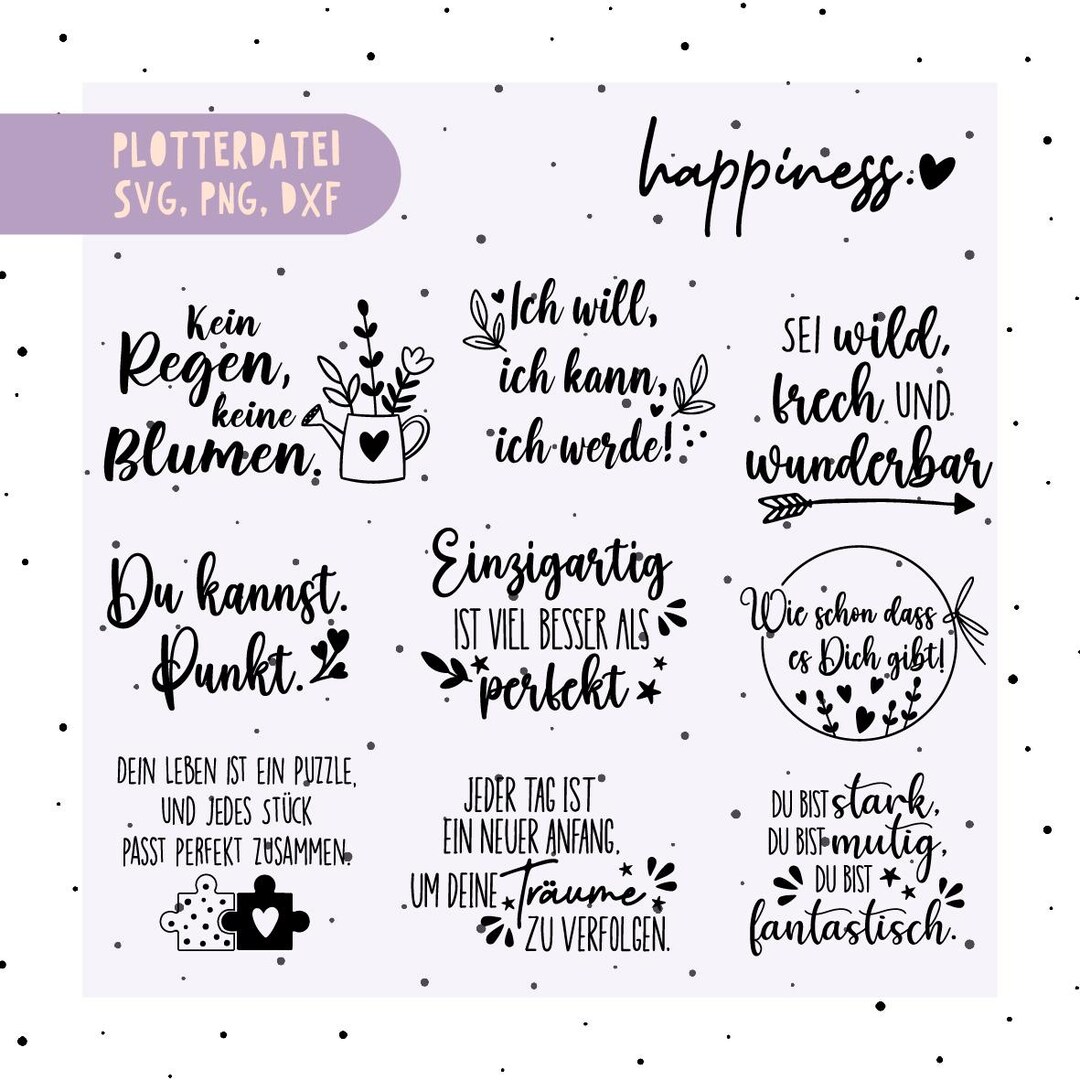 PLOTTERDATEI
SVG, PNG, DXF
happiness:
Kein
Regen,
keine
Blumen.
Ich will,
ich kann,
ich werde!
SEI wild,
frech UND
wunderbar
Du kannst.
Punkt.
Einzigartig
IST VIEL BESSER ALS
perfekt
Wie schon dass
es Dich gibt!
DEIN LEBEN IST EIN PUZZLE,
UND JEDES STÜCK
PASST PERFEKT ZUSAMMEN.
JEDER TAG IST
EIN NEUER ANFANG,
UM DEINE Träume
ZU VERFOLGEN.
DU BIST stark,
DU BIST mutig,
DU BIST
fantastisch.